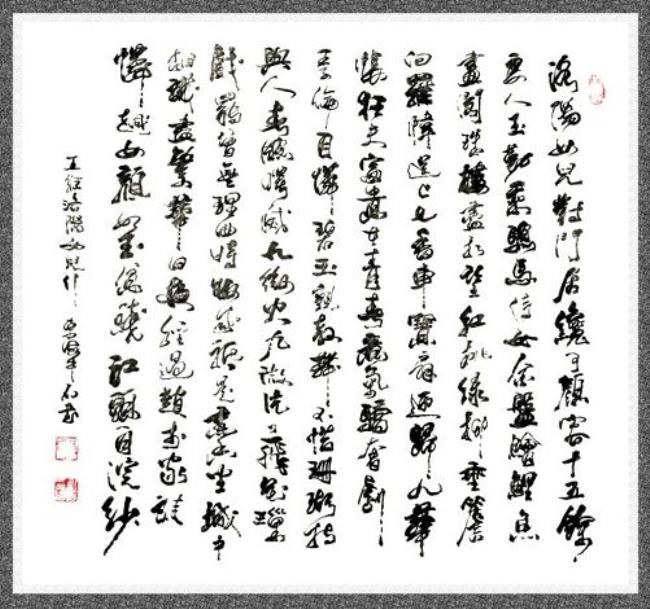 洛陽女兒對門居纔可顏容十五餘
良人玉勒乘驄馬侍女金盤膾鯉魚
畫閣珠樓盡相望紅桃綠柳垂簷
向羅幃送上七香車寶扇迎歸九華
帳狂夫富貴在青春意氣驕奢劇
季倫自憐碧玉親教舞不惜珊瑚持
與人春窗曙滅九微火九微片片飛花璅
戲罷曾無理曲時妝成祗是熏香坐城中
相識盡繁華日夜經過趙李家誰
憐越女顏如玉貧賤江頭自浣紗
王維洛陽女兒行